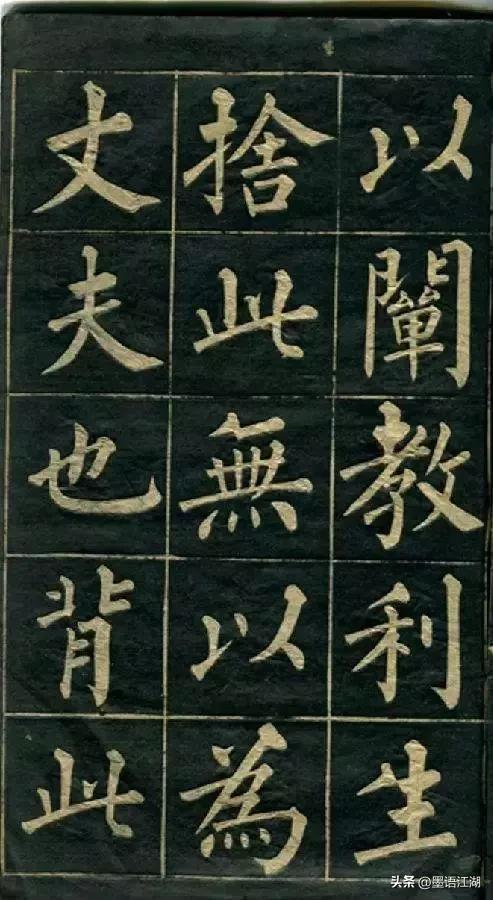 以闡教利生
捨此無以為
丈夫也背此
头条 @墨语江湖